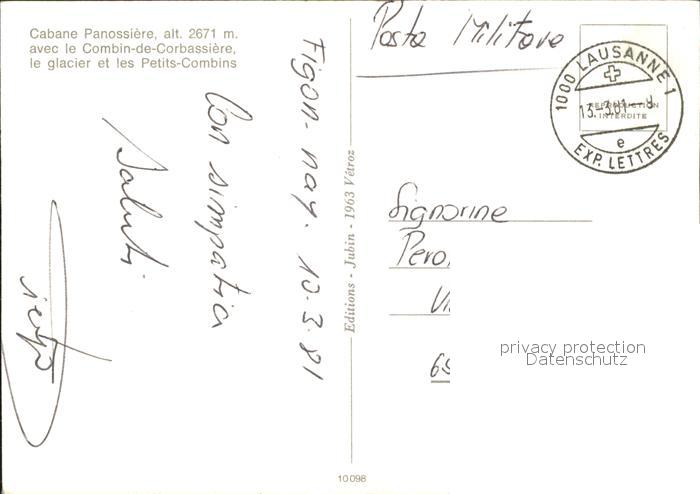 Cabane Panossière, alt. 2671 m.
avec le Combin-de-Corbassière,
le glacier et les Petits-Combins
Figon-nay. 10.3.81
Con simpatia
Saluti
Editions - Jubin - 1963 Vétroz
10098
Posta Militare
REPRODUCTION
INTERDITE
1000 LAUSANNE 1
13.-3.81-8
e
EXP. LETTRES
Signorine
Pero
Vi
69
privacy protection
Datenschutz